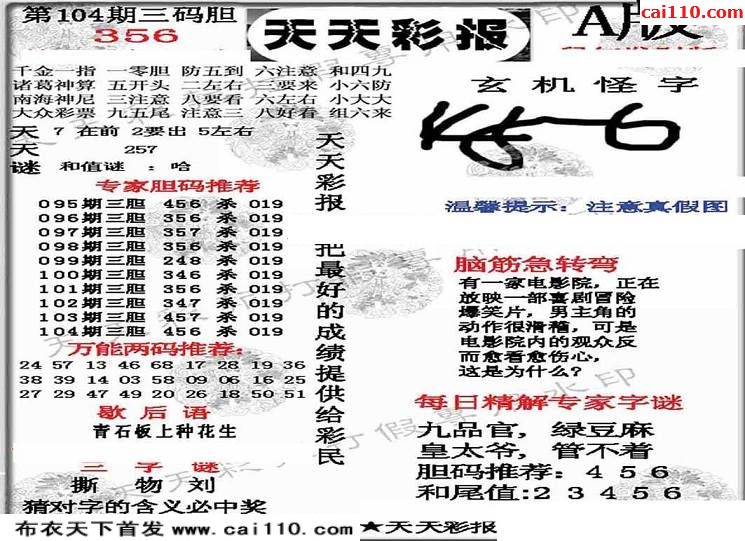 第104期三码胆
356
天天彩报
A版
cai110.com
千金一指 一零胆 防五到 六注意 和四九
诸葛神算 五开头 二左右 三要来 小六防
南海神尼 三注意 八要看 六左右 小大大
大众彩票 九五尾 注意三 八好看 组六来
天 7 在前 2要出 5左右
天 257
谜 和值谜：哈
专家胆码推荐
095期三胆 456 杀 019
096期三胆 356 杀 019
097期三胆 357 杀 019
098期三胆 356 杀 019
099期三胆 248 杀 019
100期三胆 346 杀 019
101期三胆 356 杀 019
102期三胆 347 杀 019
103期三胆 457 杀 019
104期三胆 456 杀 019
万能两码推荐：
24 57 13 46 68 17 28 19 36
38 39 14 03 58 09 06 16 25
27 29 47 49 20 26 18 50 51
歇后语
青石板上种花生
三字谜
撕 物 刘
猜对字的含义必中奖
天天彩报 把最好的成绩提供给彩民
玄机怪字
温馨提示：注意真假图
脑筋急转弯
有一家电影院，正在
放映一部喜剧冒险
爆笑片，男主角的
动作很滑稽，可是
电影院内的观众反
而愈看愈伤心，
这是为什么？
每日精解专家字谜
九品官，绿豆麻
皇太爷，管不着
胆码推荐：456
和尾值：23456
布衣天下首发 www.cai110.com
★天天彩报